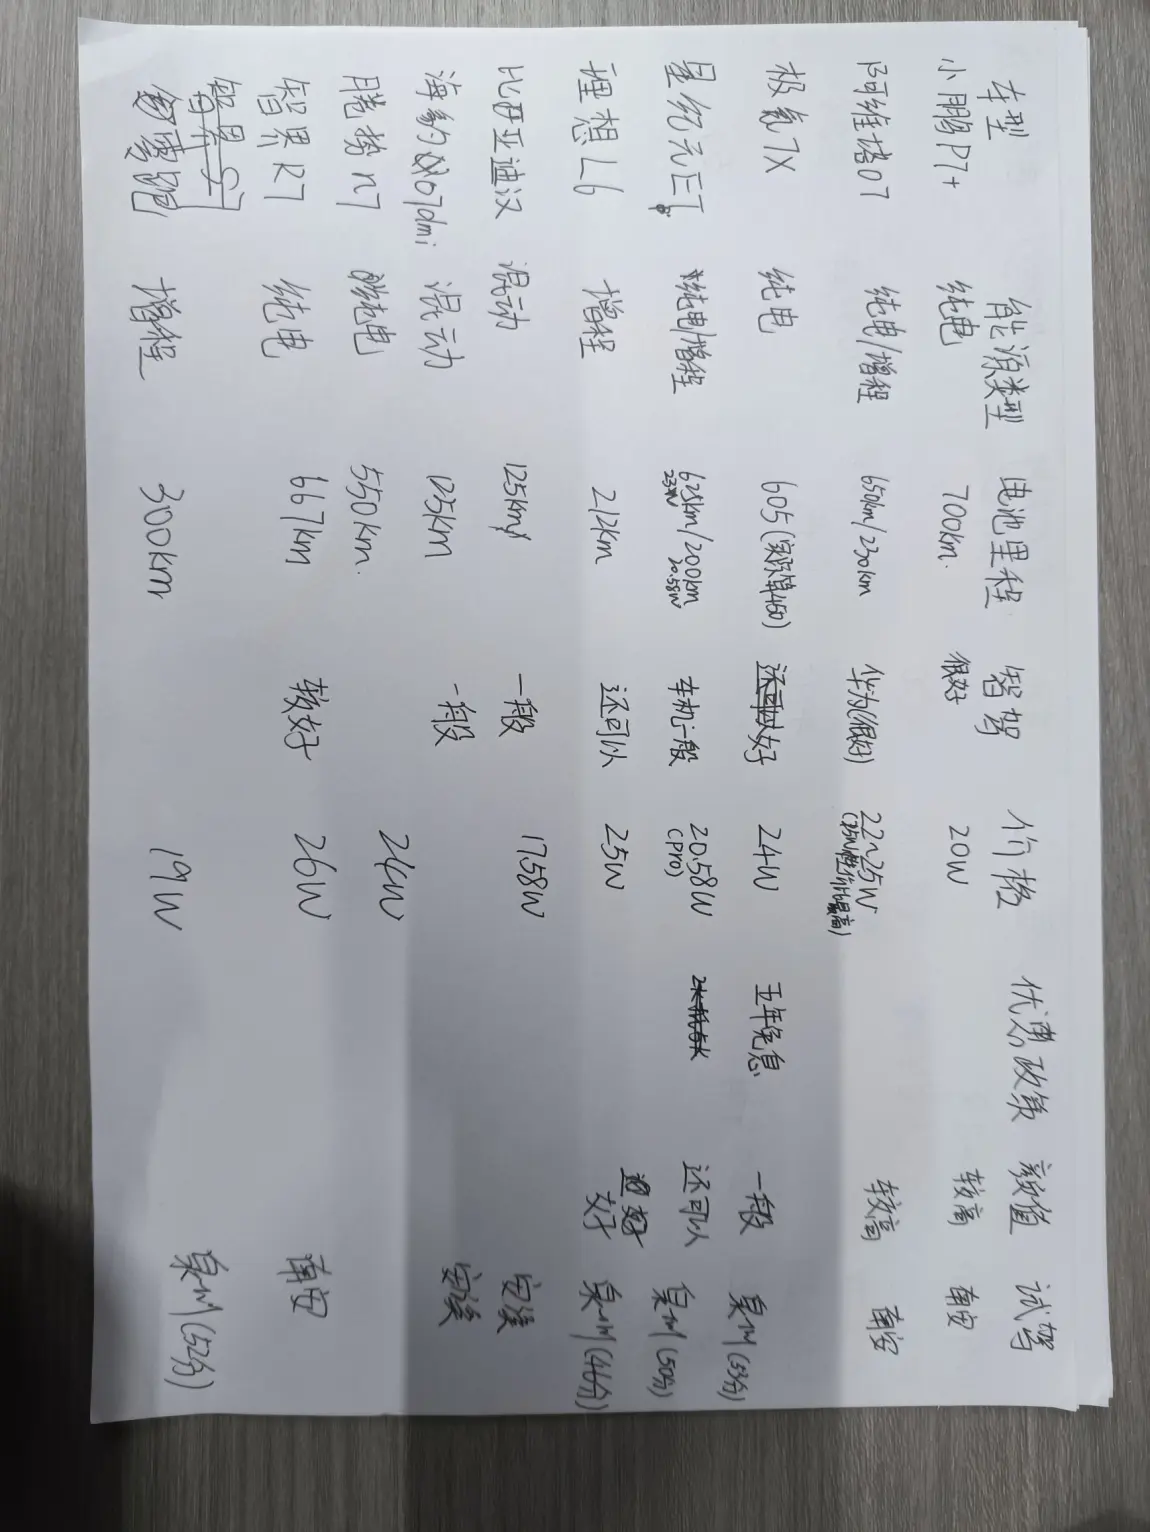 车型 能源类型 电池里程 智驾 价格 优惠政策 颜值 试驾
小鹏P7+ 纯电 700km. 很好 20W 较高 南安
阿维塔07 纯电/增程 650km/230km 华为(很好) 22~25W 较高 南安
极氪7X 纯电 605(实际算450) 好 24W 五年免息 一般 泉州(53分)
星纪元ET 纯电/增程 625km/200km 车机一般 20.58W 还可以 泉州(50分)
20.58W (pro)
理想L6 增程 212km 还可以 25W 好 泉州(46分)
比亚迪汉 混动 125km 一般 17.58W 安溪
海豹07dmi 混动 125km 一般 安溪
腾势N7 纯电 550km. 24W
智界R7 纯电 667km 较好 26W 南安
智界S7
增程 300km 19W 泉州(52分)